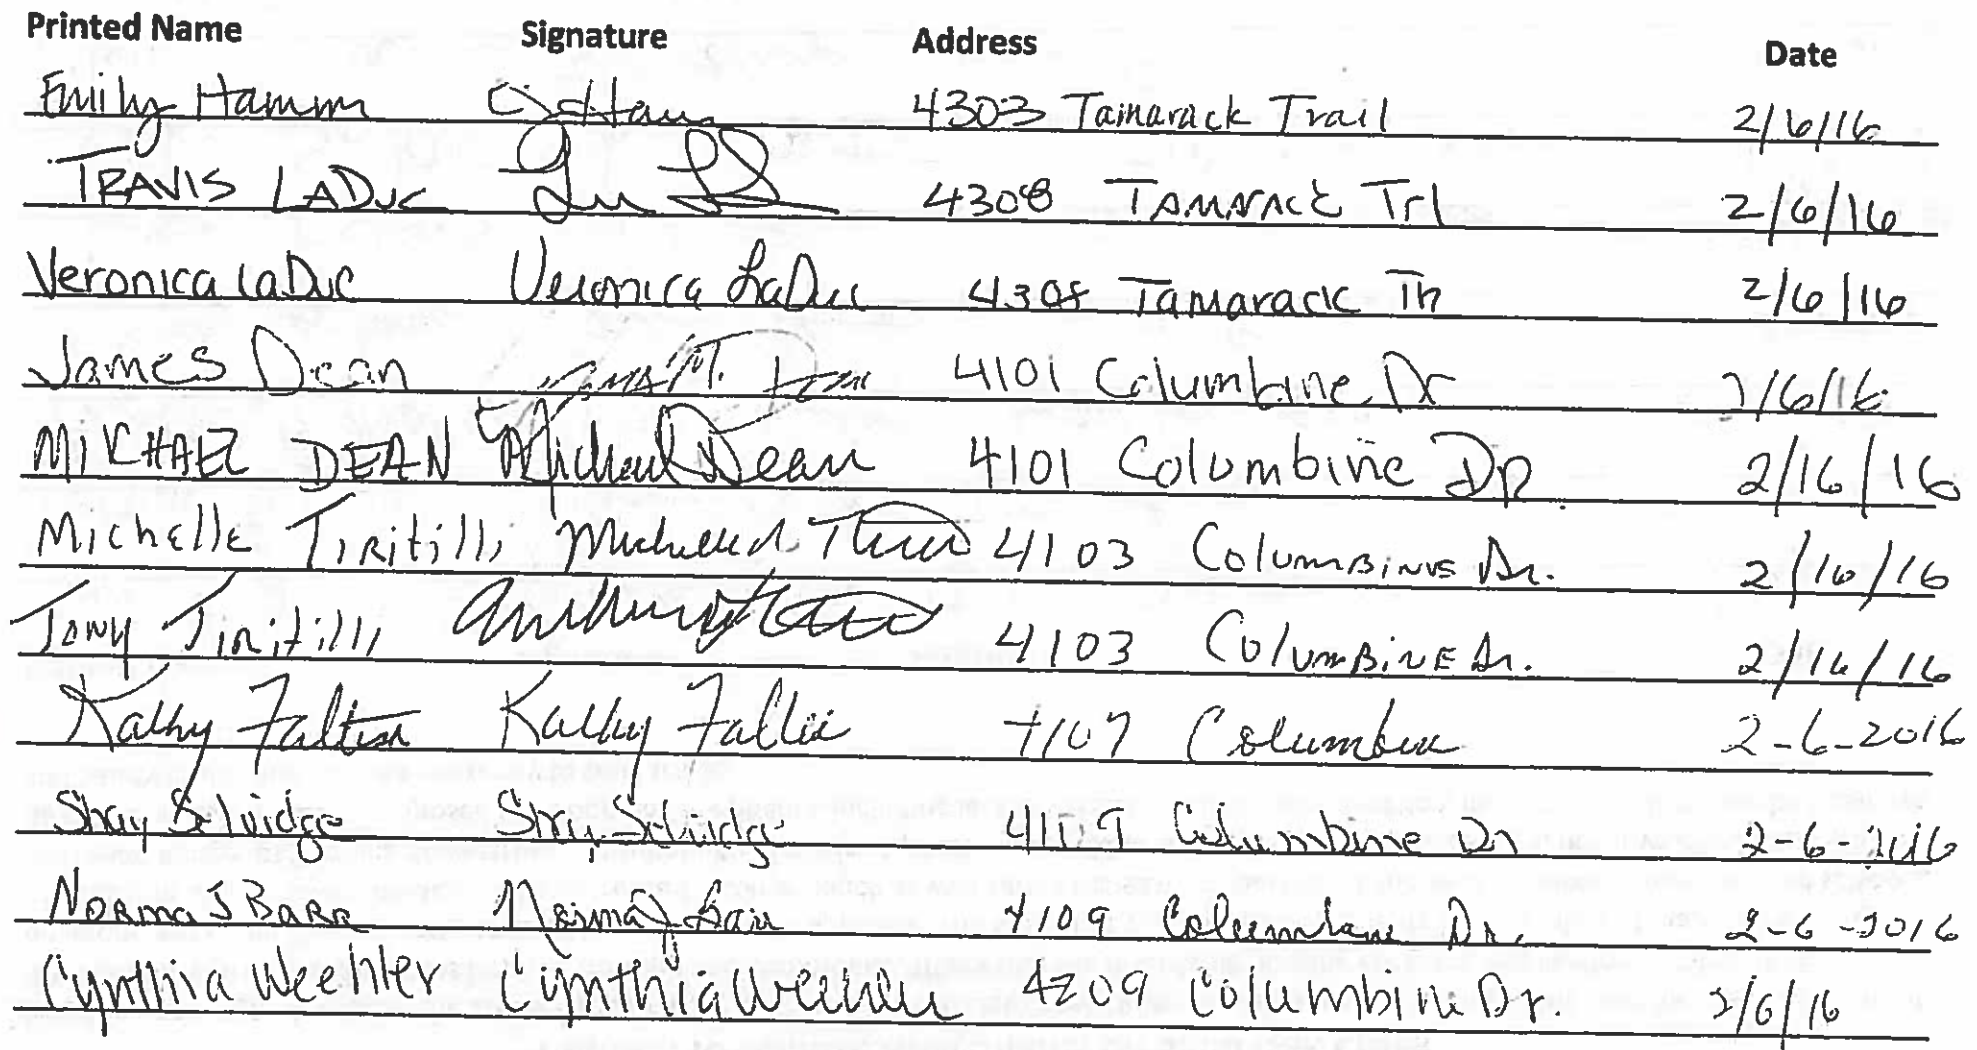 Printed Name Signature Address Date
Emily Hamm E Ham 4303 Tamarack Trail 2/6/16
TRAVIS LADUC 4308 TAMARACK Trl 2/6/16
Veronica LaDuc Veronica LaDuc 4308 Tamarack Trl 2/6/16
James Dean James M. Dean 4101 Columbine Dr 2/6/16
MICHAEL DEAN Michael Dean 4101 Columbine DR. 2/16/16
Michelle Tiritilli Michelle 4103 Columbine Dr. 2/16/16
Tony Tiritilli Anthony 4103 Columbine Dr. 2/16/16
Kathy Kathy 4107 Columbine 2-6-2016
Selvidge Selvidge 4109 Columbine Dr 2-6-2016
Norma J BARR Norma J Barr 4109 Columbine Dr. 2-6-2016
Cynthia Weehler Cynthia Weehler 4209 Columbine Dr. 2/6/16